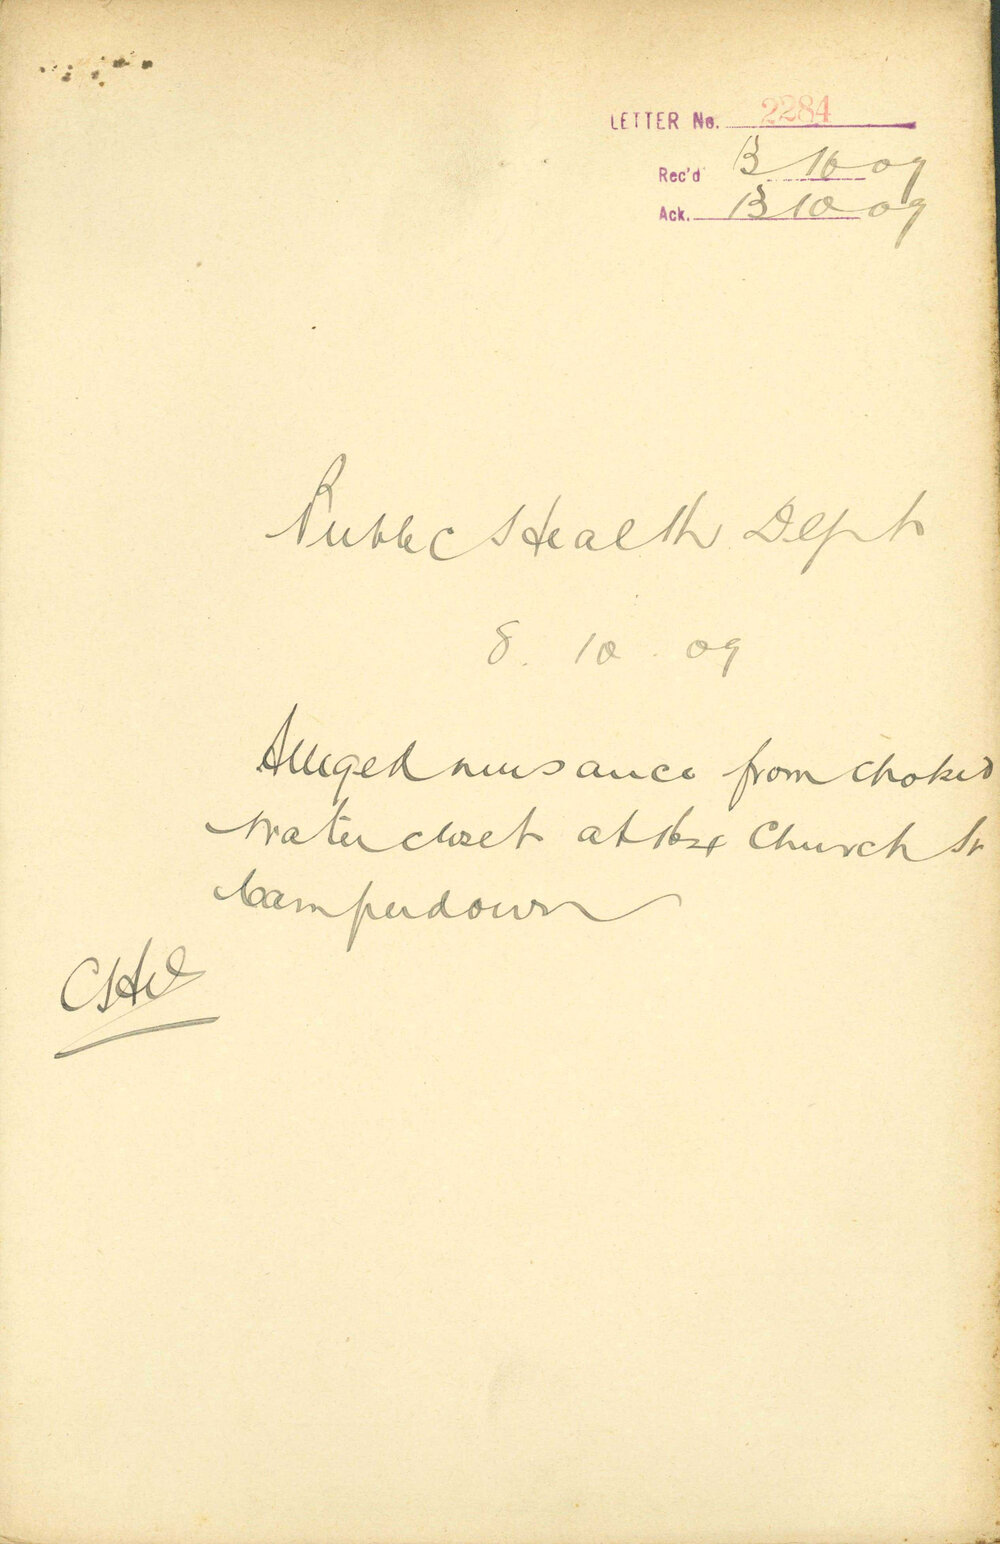 LETTER No. 2284
Rec'd 13 10 09
Ack. 13 10 09
Public Health Dept
8. 10. 09
Alleged nuisance from choked
water closet at Church St
Camperdown